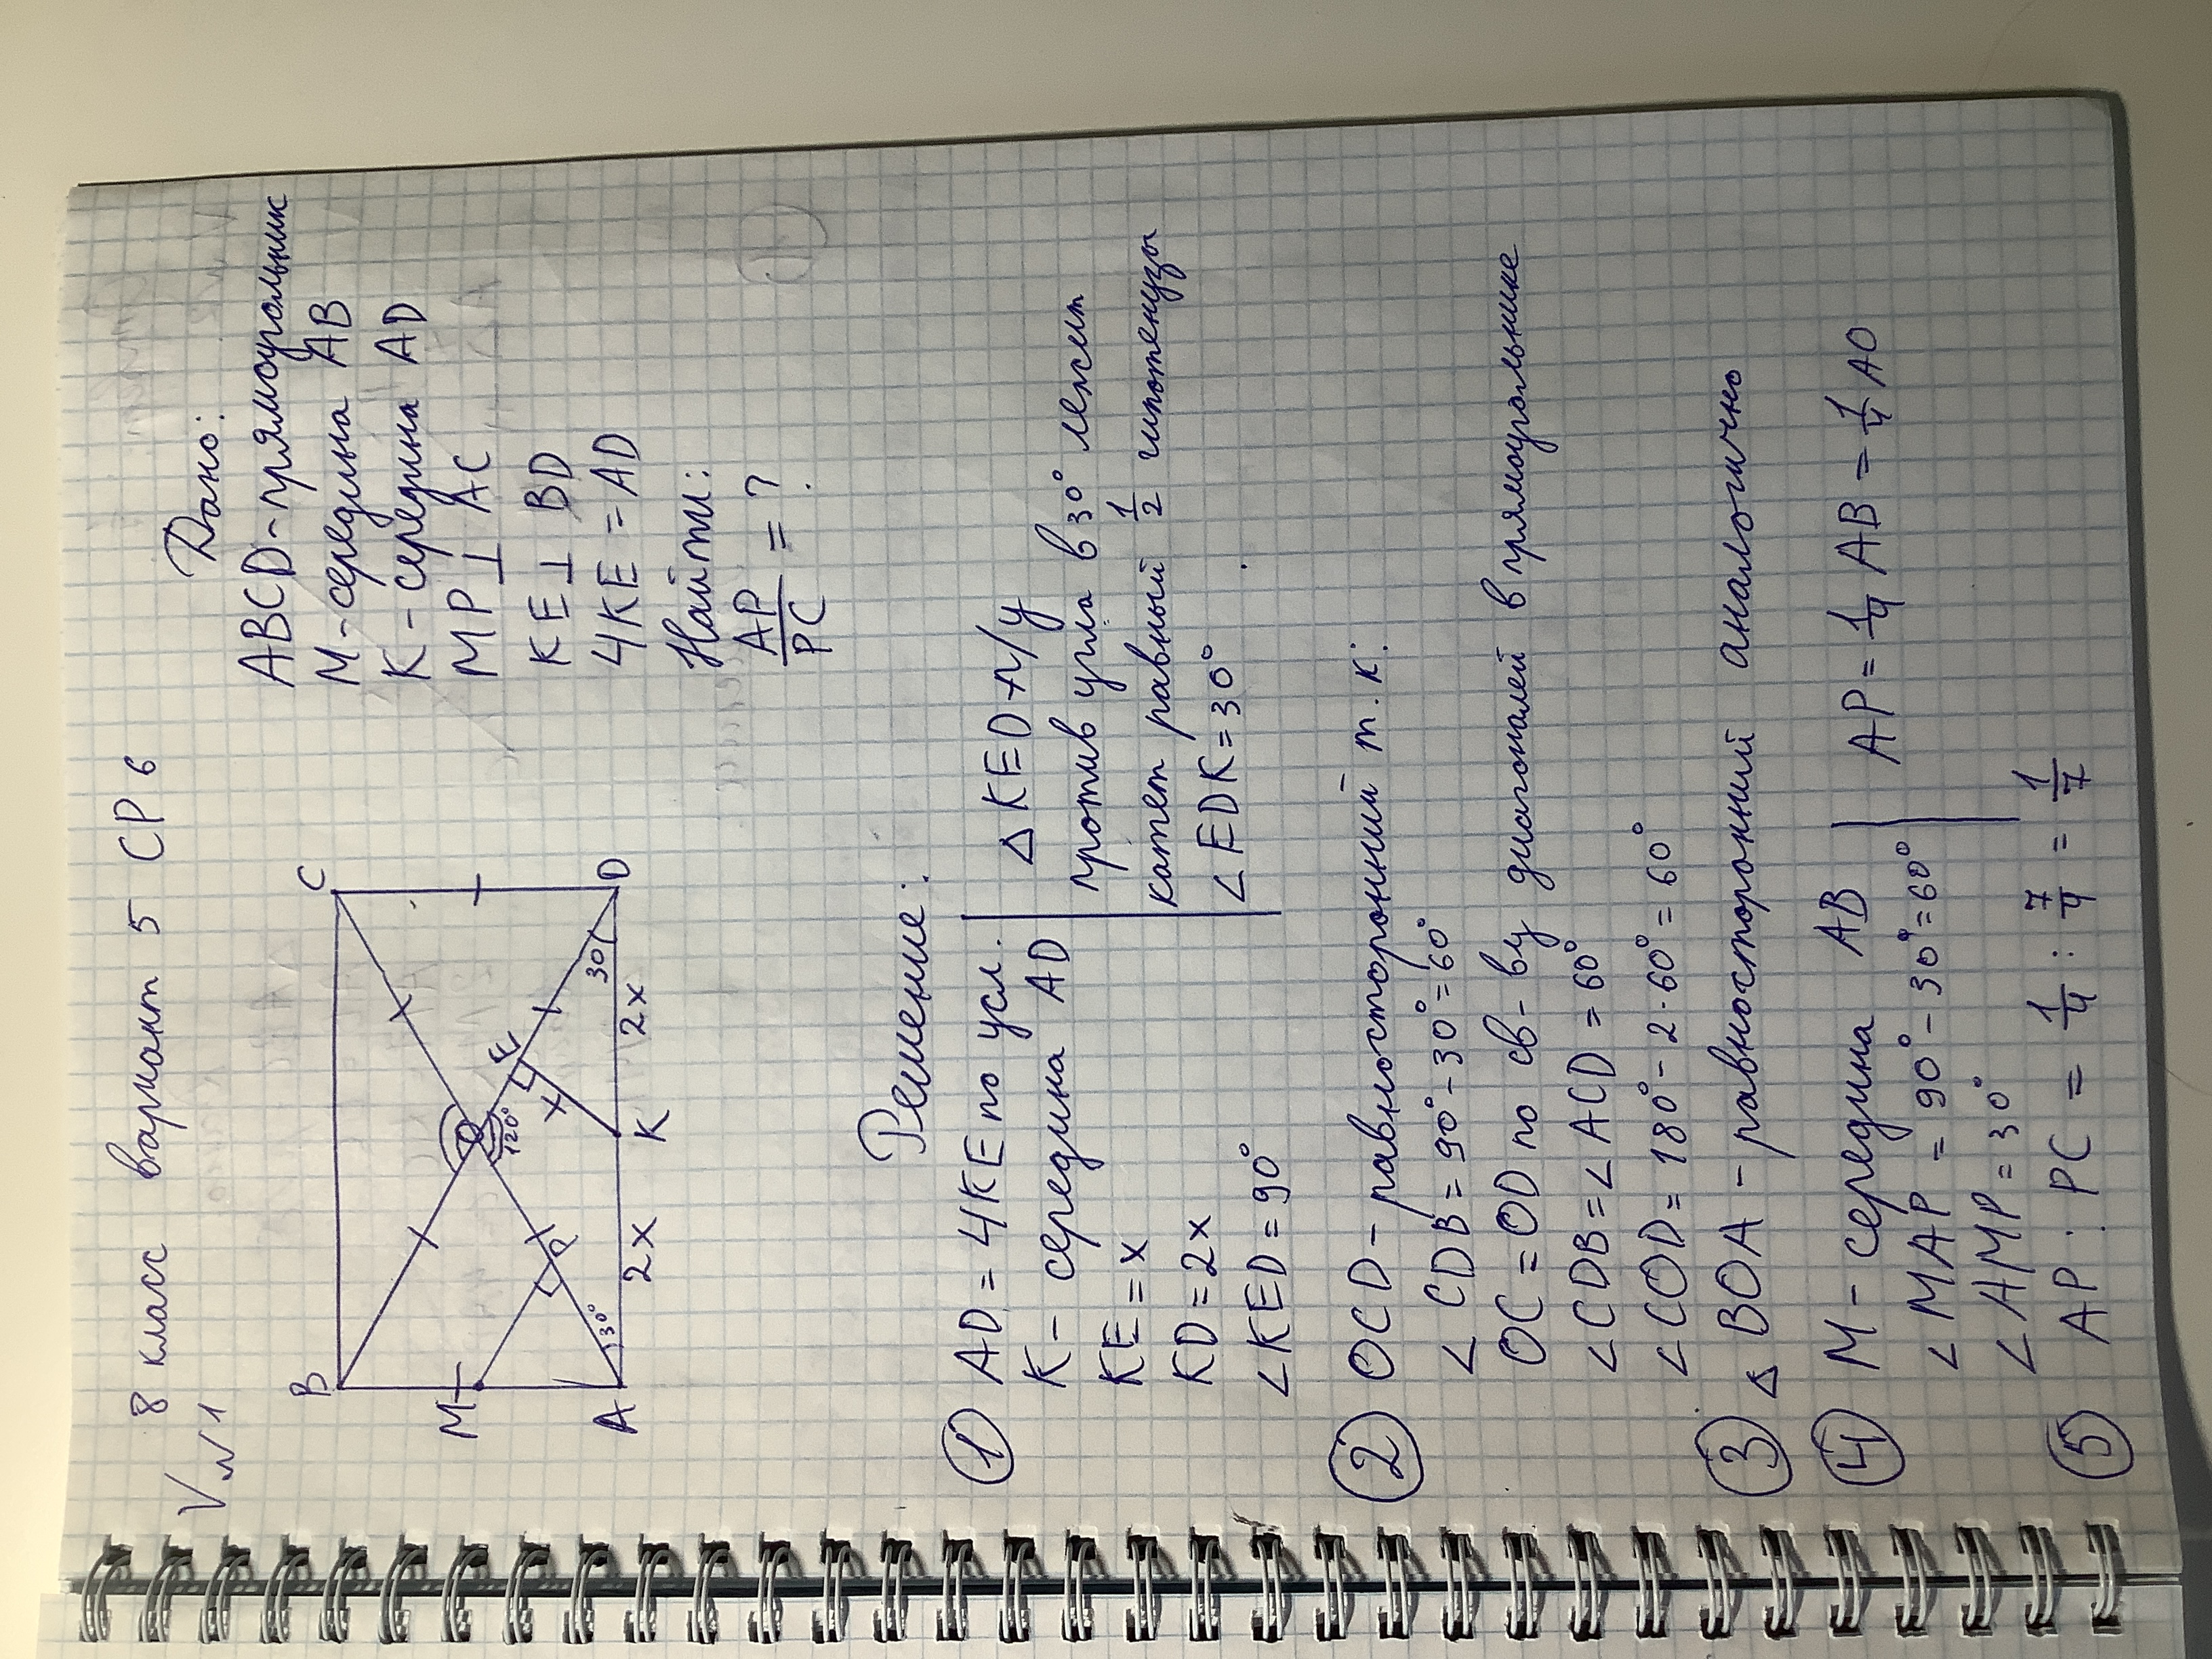 8 класс вариант 5 СР 6
V №1
Дано:
ABCD - прямоугольник
M - середина AB
K - середина AD
MP ⊥ AC
KE ⊥ BD
4KE = AD
Найти:
AP/PC = ?
B
C
M
O
120°
E
P
x
A
30°
30
D
2x
K
2x
Решение:
① AD = 4KE по усл.
K - середина AD
KE = x
KD = 2x
∠KED = 90°
△ KED - п/у
против угла в 30° лежит
катет равный 1/2 гипотенузы
∠EDK = 30°
② OCD - равносторонний т.к:
∠ CDB = 90° - 30° = 60°
OC = OD по св-ву диагоналей в прямоугольнике
∠CDB = ∠ACD = 60°
∠COD = 180° - 2·60° = 60°
③ △ BOA - равносторонний аналогично
④ M - середина AB
∠MAP = 90° - 30° = 60°
∠AMP = 30°
AP = 1/4 AB = 1/4 AO
⑤ AP : PC = 1/4 : 7/4 = 1/7